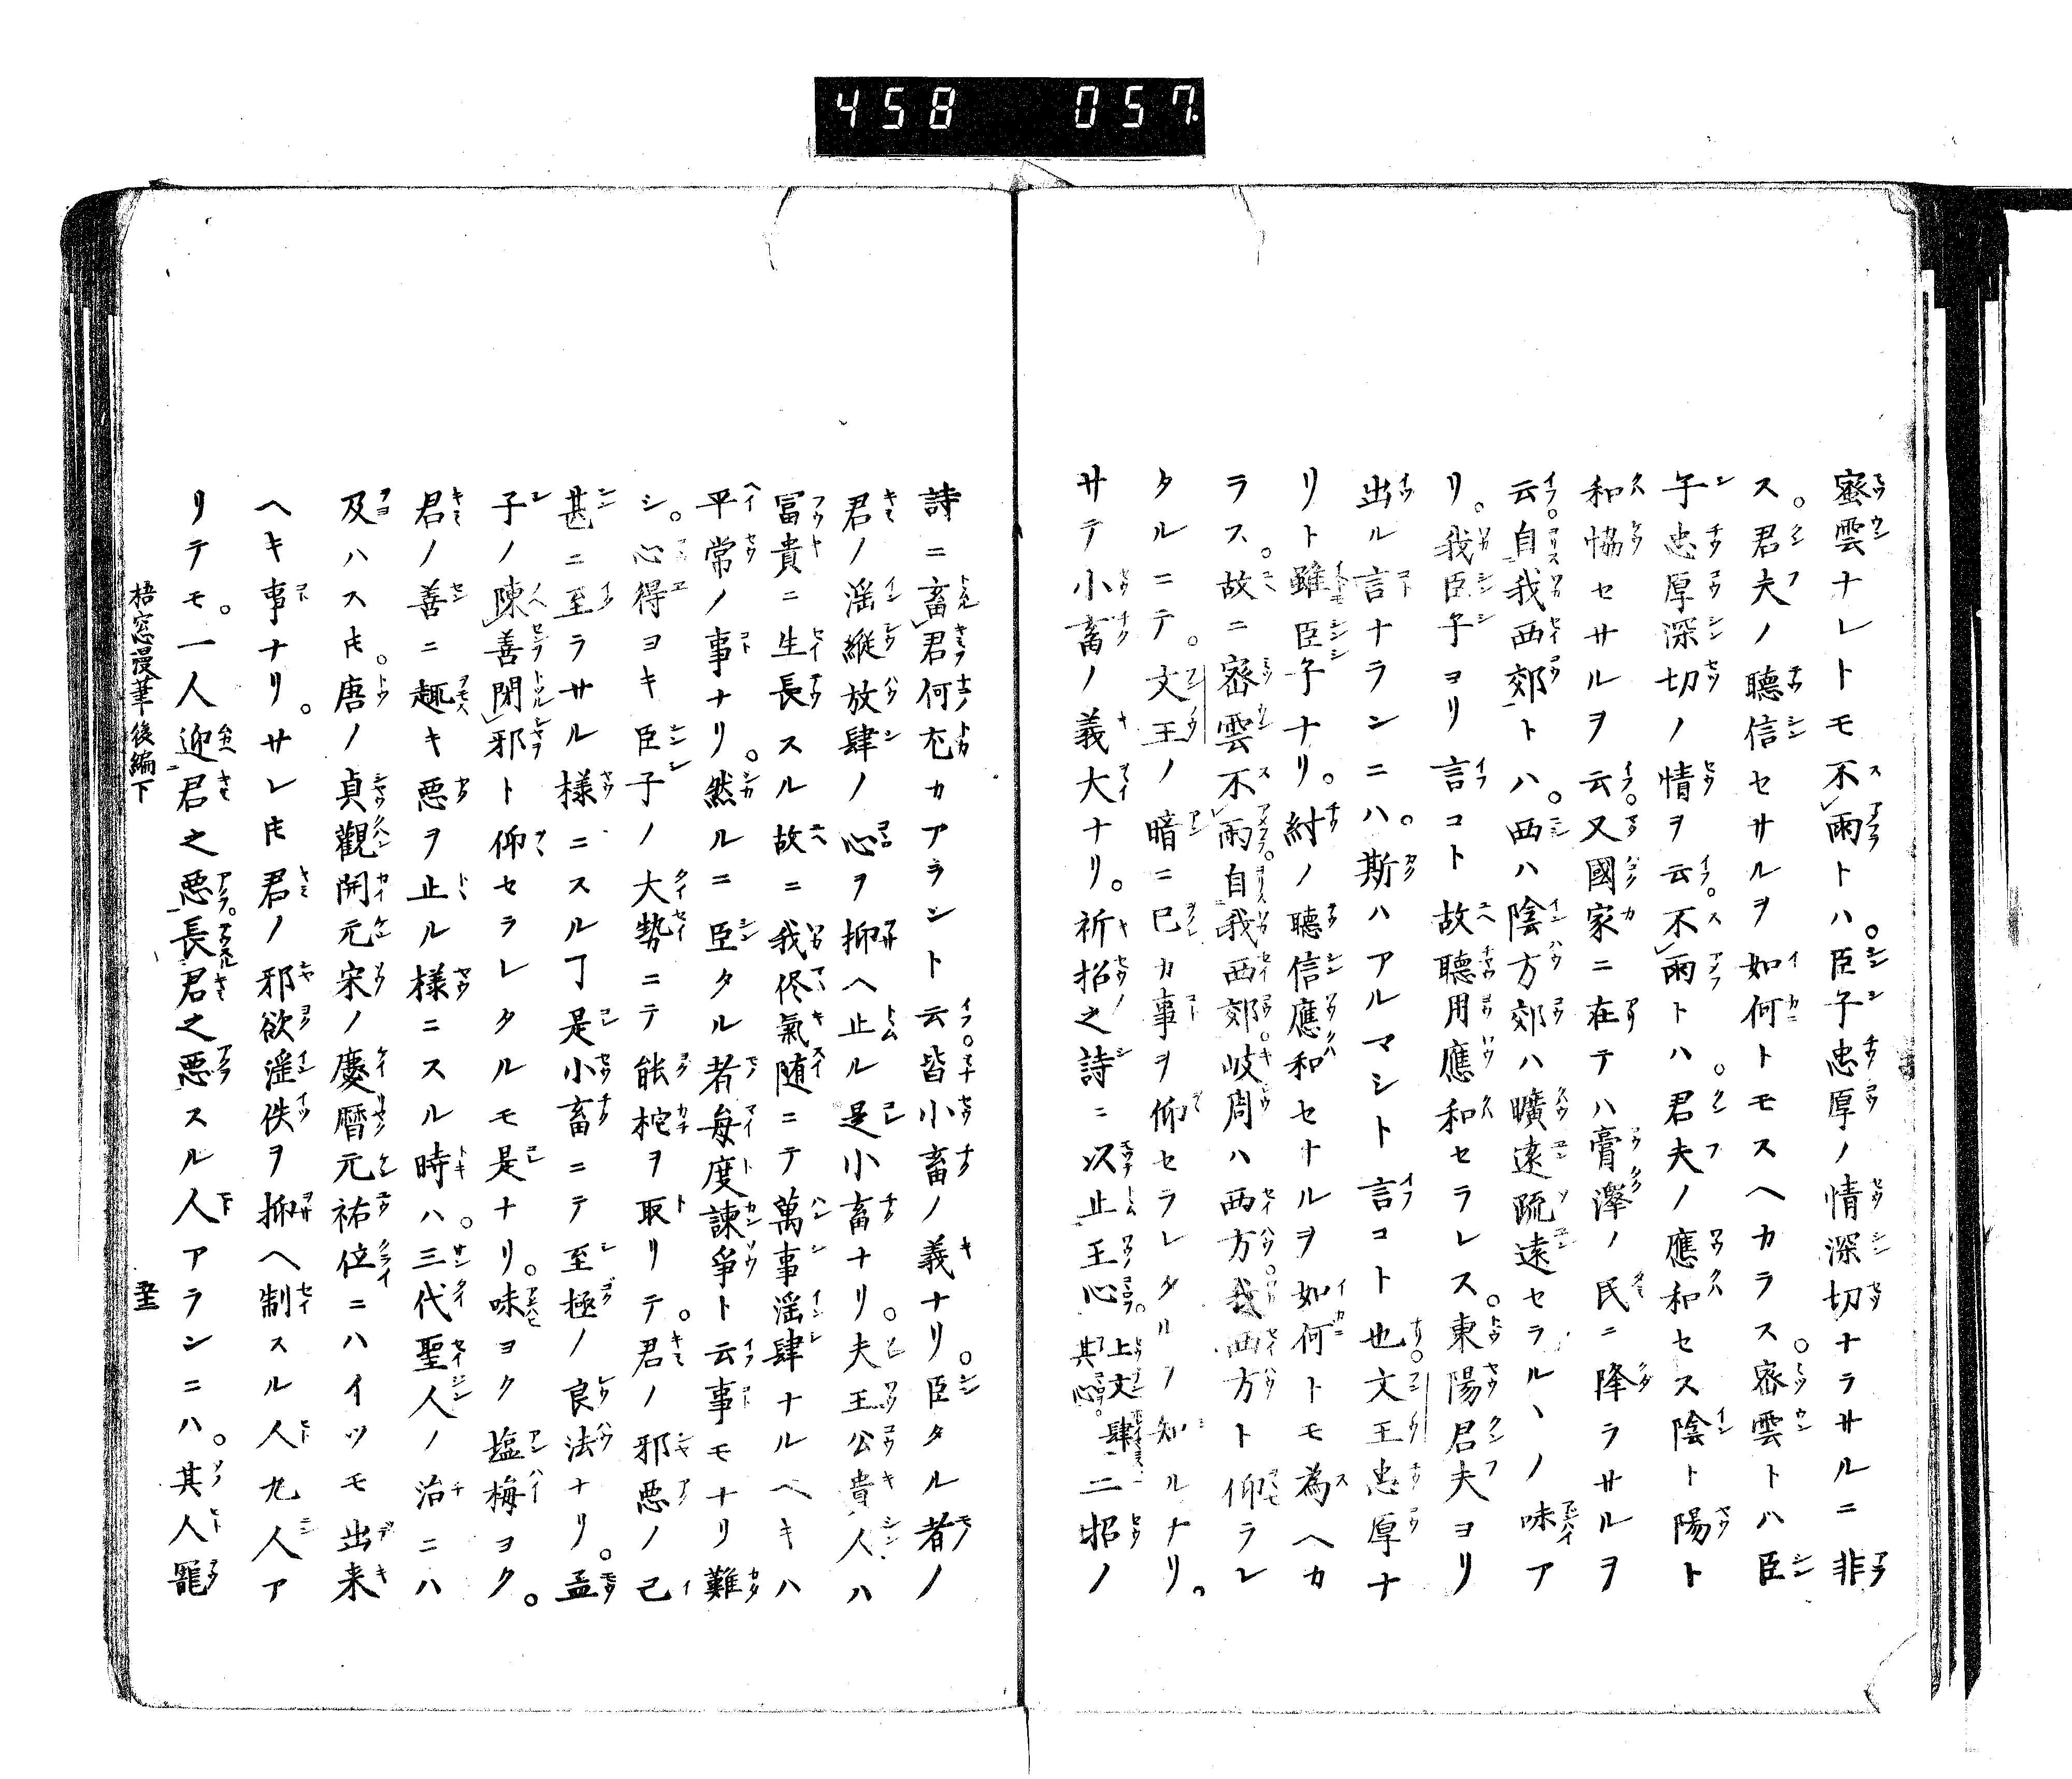 458 057
密雲ナレトモ不雨トハ。臣子忠厚ノ情深切ナラサルニ非
ス。君夫ノ聽信セサルヲ如何トモスヘカラス。密雲トハ臣
子忠厚深切ノ情ヲ云。不雨トハ。君夫ノ應和セス陰ト陽ト
和恊セサルヲ云。又國家ニ在テハ膏澤ノ民ニ降ラサルヲ
云。自我西郊トハ。西ハ陰方郊ハ曠遠疏遠セラルヽノ味ア
リ。我臣子ヨリ言コト故聽用應和セラレス。東陽君夫ヨリ
出ル言ナランニハ。斯ハアルマシト言コト也。文王忠厚ナ
リト雖臣子ナリ。紂ノ聽信應和セナルヲ如何トモ為ヘカ
ラス。故ニ密雲不雨。自我西郊。岐周ハ西方。我西方ト仰ラレ
タルニテ。文王ノ暗ニ已カ事ヲ仰セラレタルヲ知ルナリ。
サテ小畜ノ義大ナリ。祈招之詩ニ以止王心。上文肆其心。二招ノ
詩ニ畜君何尤カアラント云。皆小畜ノ義ナリ。臣タル者ノ
君ノ滛縱放肆ノ心ヲ抑ヘ止ル是小畜ナリ。夫王公貴人ハ
冨貴ニ生長スル故ニ我侭氣随ニテ萬事滛肆ナルヘキハ
平常ノ事ナリ。然ルニ臣タル者毎度諫爭ト云事モナリ難
シ。心得ヨキ臣子ノ大勢ニテ能柁ヲ取リテ。君ノ邪悪ノ己
甚ニ至ラサル様ニスル丁是小畜ニテ至極ノ良法ナリ。孟
子ノ陳善閉邪ト仰セラレタルモ是ナリ。味ヨク塩梅ヨク。
君ノ善ニ趣キ悪ヲ止ル様ニスル時ハ。三代聖人ノ治ニハ
及ハス𪜈。唐ノ貞觀開元宋ノ慶暦元祐位ニハイツモ出来
ヘキ事ナリ。サレ𪜈君ノ邪欲滛佚ヲ抑ヘ制スル人九人ア
リテモ。一人迎君之悪。長君之悪スル人アランニハ。其人寵
梧窓漫筆後編下